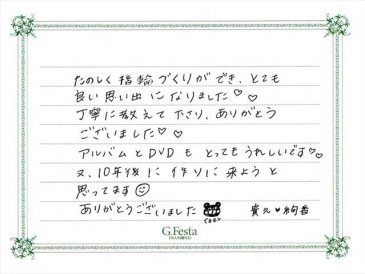 たのしく指輪づくりができ、とても
良い思い出になりました♡♡
丁寧に教えて下さり、ありがとう
ございました♡♡
アルバムとDVDもとってもうれしいです♡♡
又、10年後に作りに来ようと
思ってます☺
ありがとうございました 貴之♥絢香
G.Festa
DIAMOND